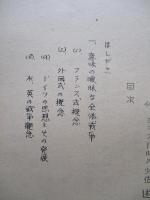 目次
はしがき
一、意味の曖昧な全体戦争
(1) フランス式概念
(2) 外国式の概念
(3) ドイツの思想とその発展
(4) 米英の戦争概念